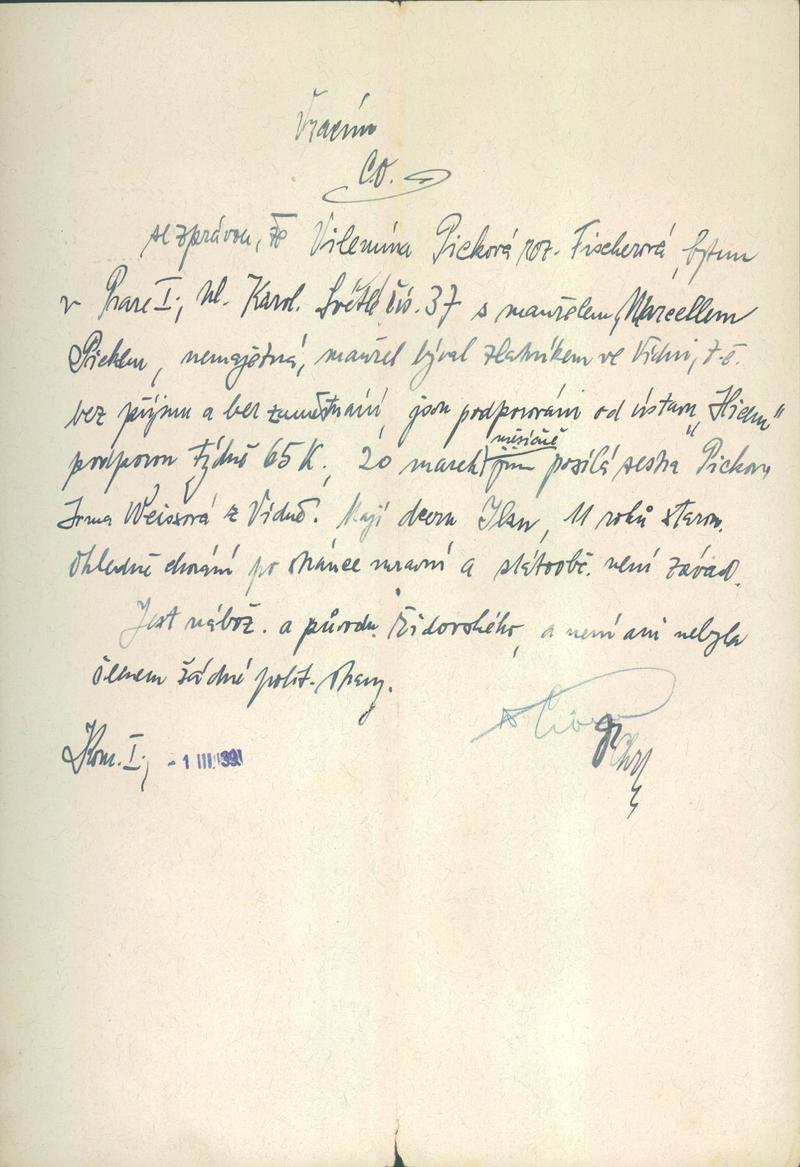 Vracím
CO.
se zprávou, že Vilemína Picková roz. Fischerová, bytem
v Praze I., ul. Karol. Světlé čís. 37 s manželem, Marcellem
Pickem, nemajetná, manžel býval zlatníkem ve Vídni, t. č.
bez příjmu a bez zaměstnání, jsou podporováni od ústavu „Hicem“
podporou týdně 65 K., 20 marek jim měsíčně posílá sestra Pickové
Irma Weissová z Vídně. Mají dceru Ilsu, 11 roků starou.
Ohledně chování po stránce mravní a státoobč. není závad.
Jest nábož. a původu židovského, a není ani nebyla
členem žádné polit. strany.
Kom. I., - 1 III 1939